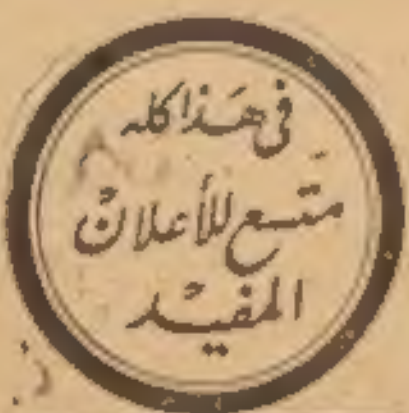 فى هذا كله
متسع للأعلان
المفيد